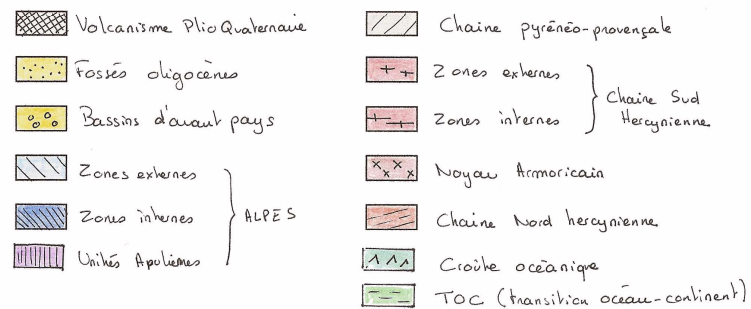 Volcanisme Plio Quaternaire
Fossés oligocènes
Bassins d'avant pays
Zones externes
Zones internes
ALPES
Unités Apuliennes
Chaine pyrénéo-provençale
Zones externes
Zones internes
Chaine Sud
Hercynienne
Noyau Armoricain
Chaine Nord hercynienne
Croûte océanique
TOC (transition océan-continent)